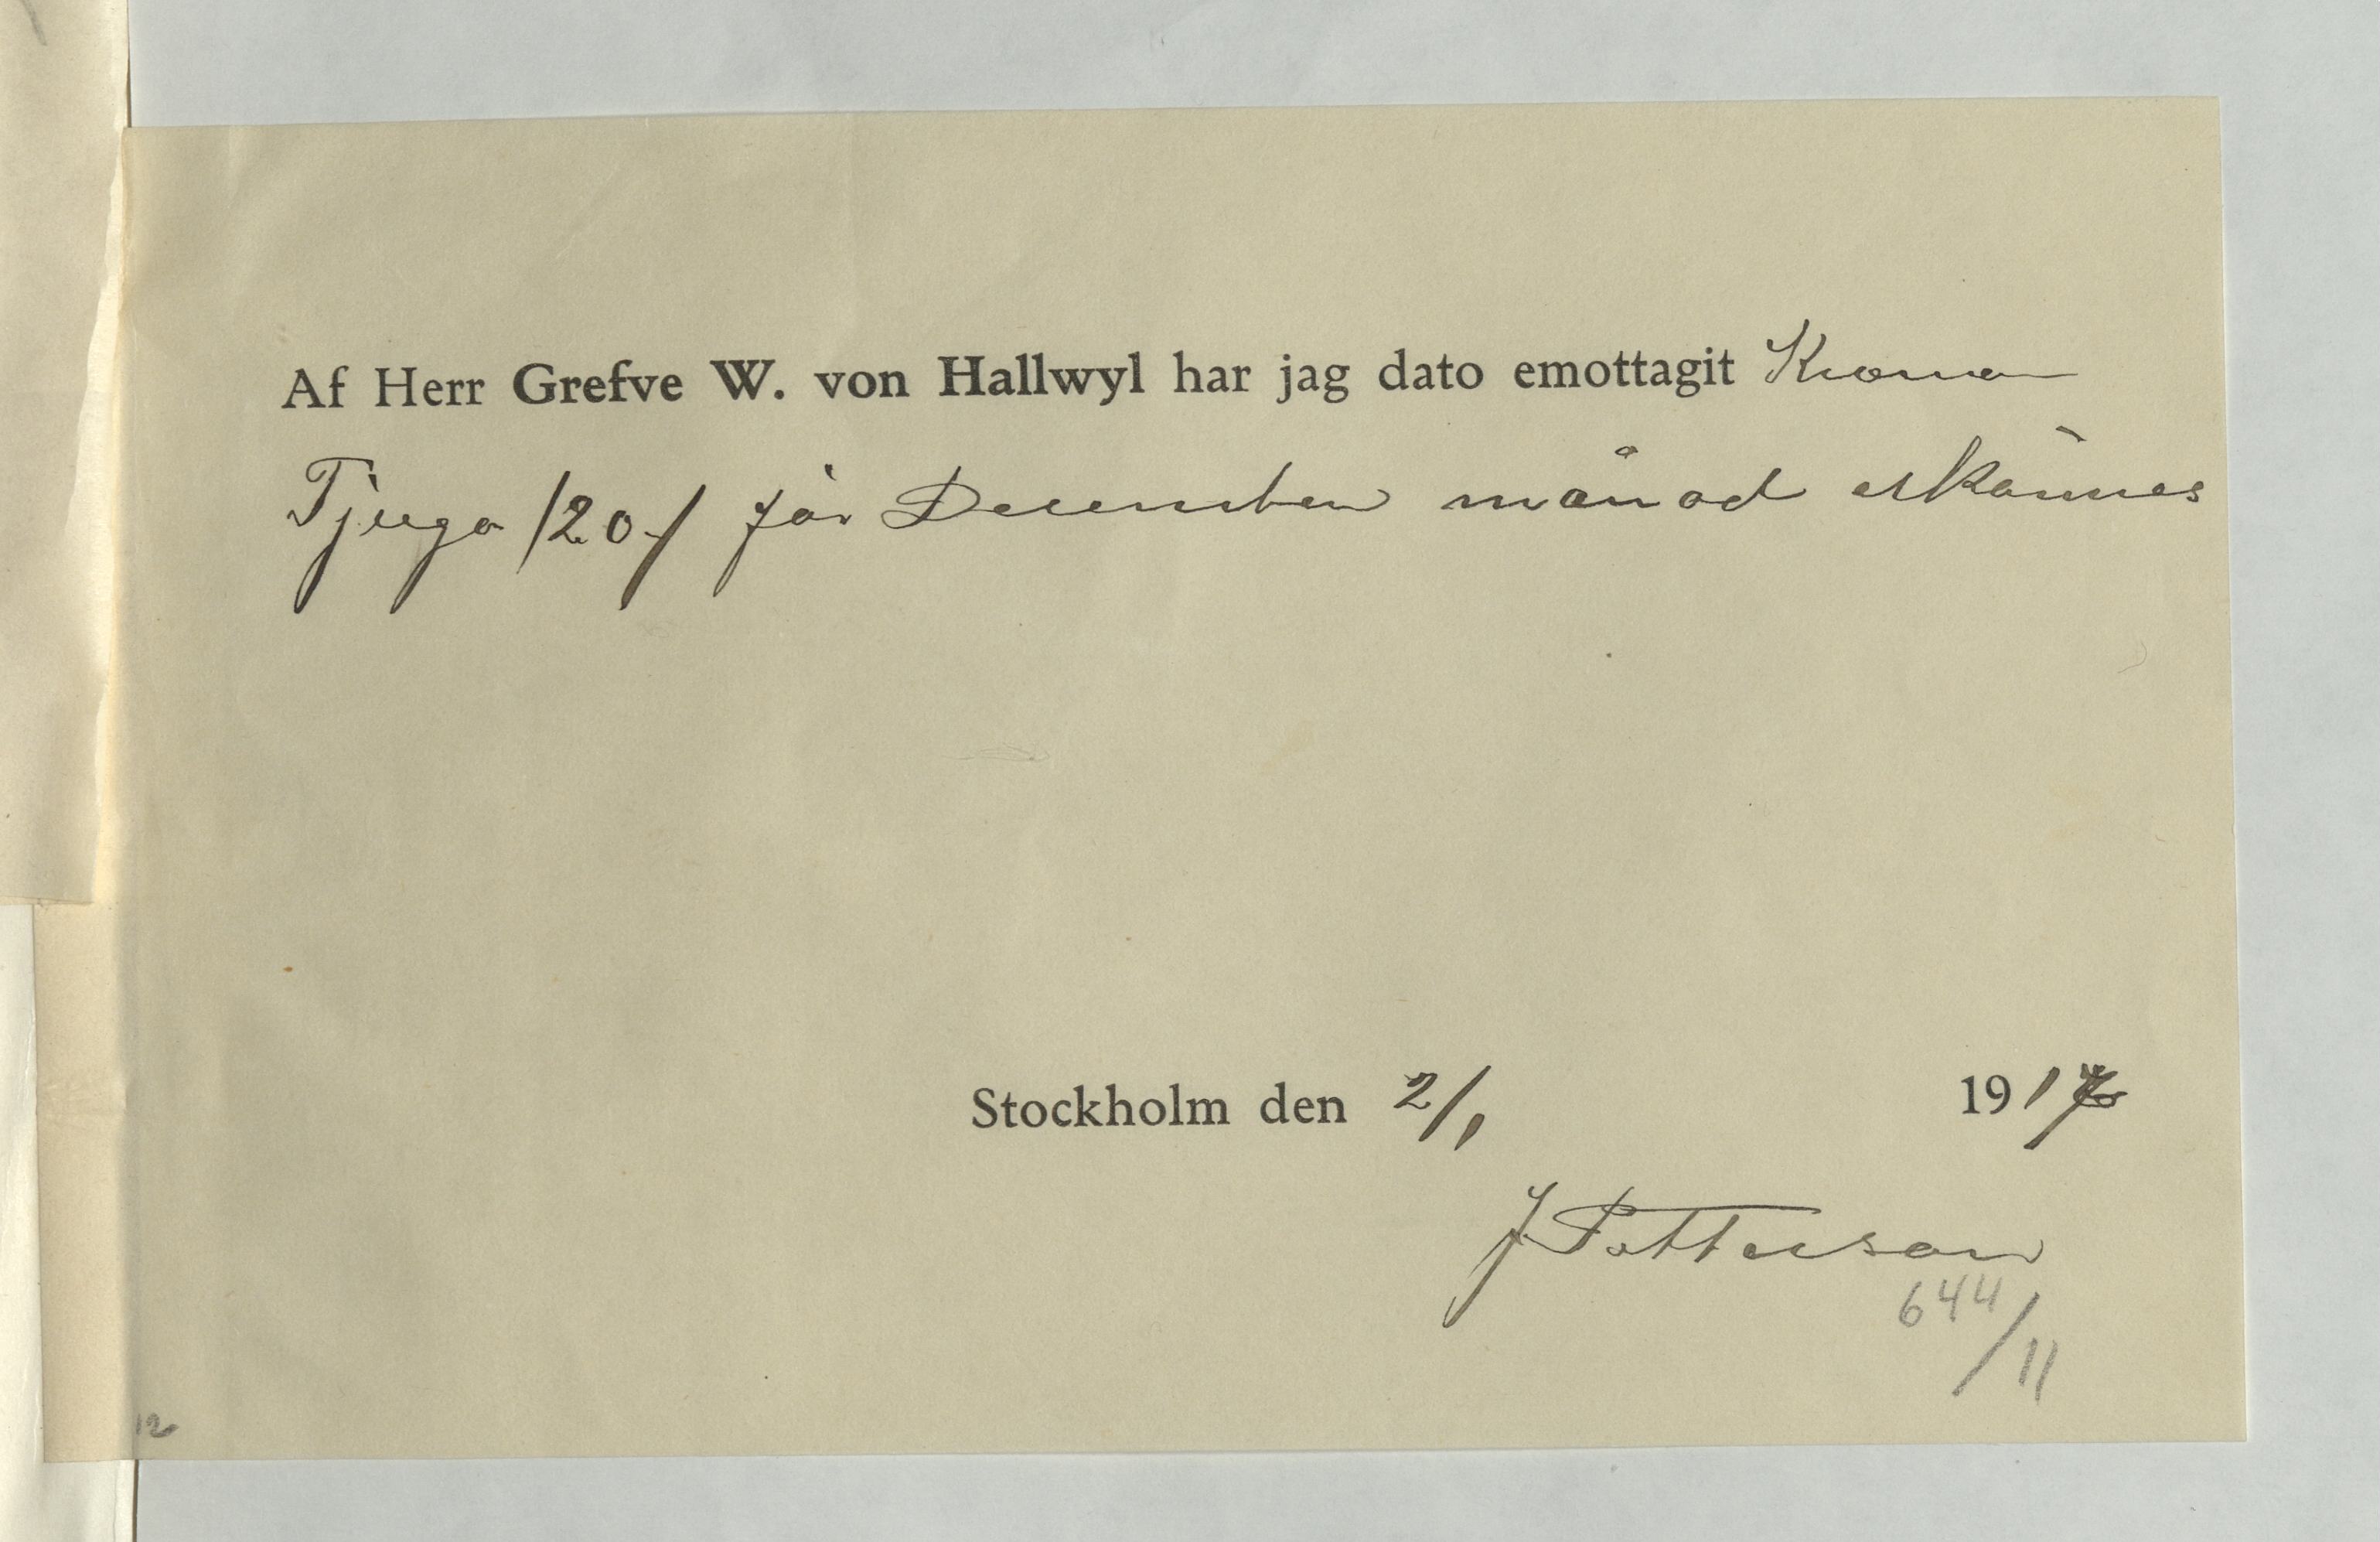 Af Herr Grefve W. von Hallwyl har jag dato emottagit Kronor
Tjugo /20-/ för December månad erkännes
Stockholm den 2/1 1917
J Petterson
644/11
12